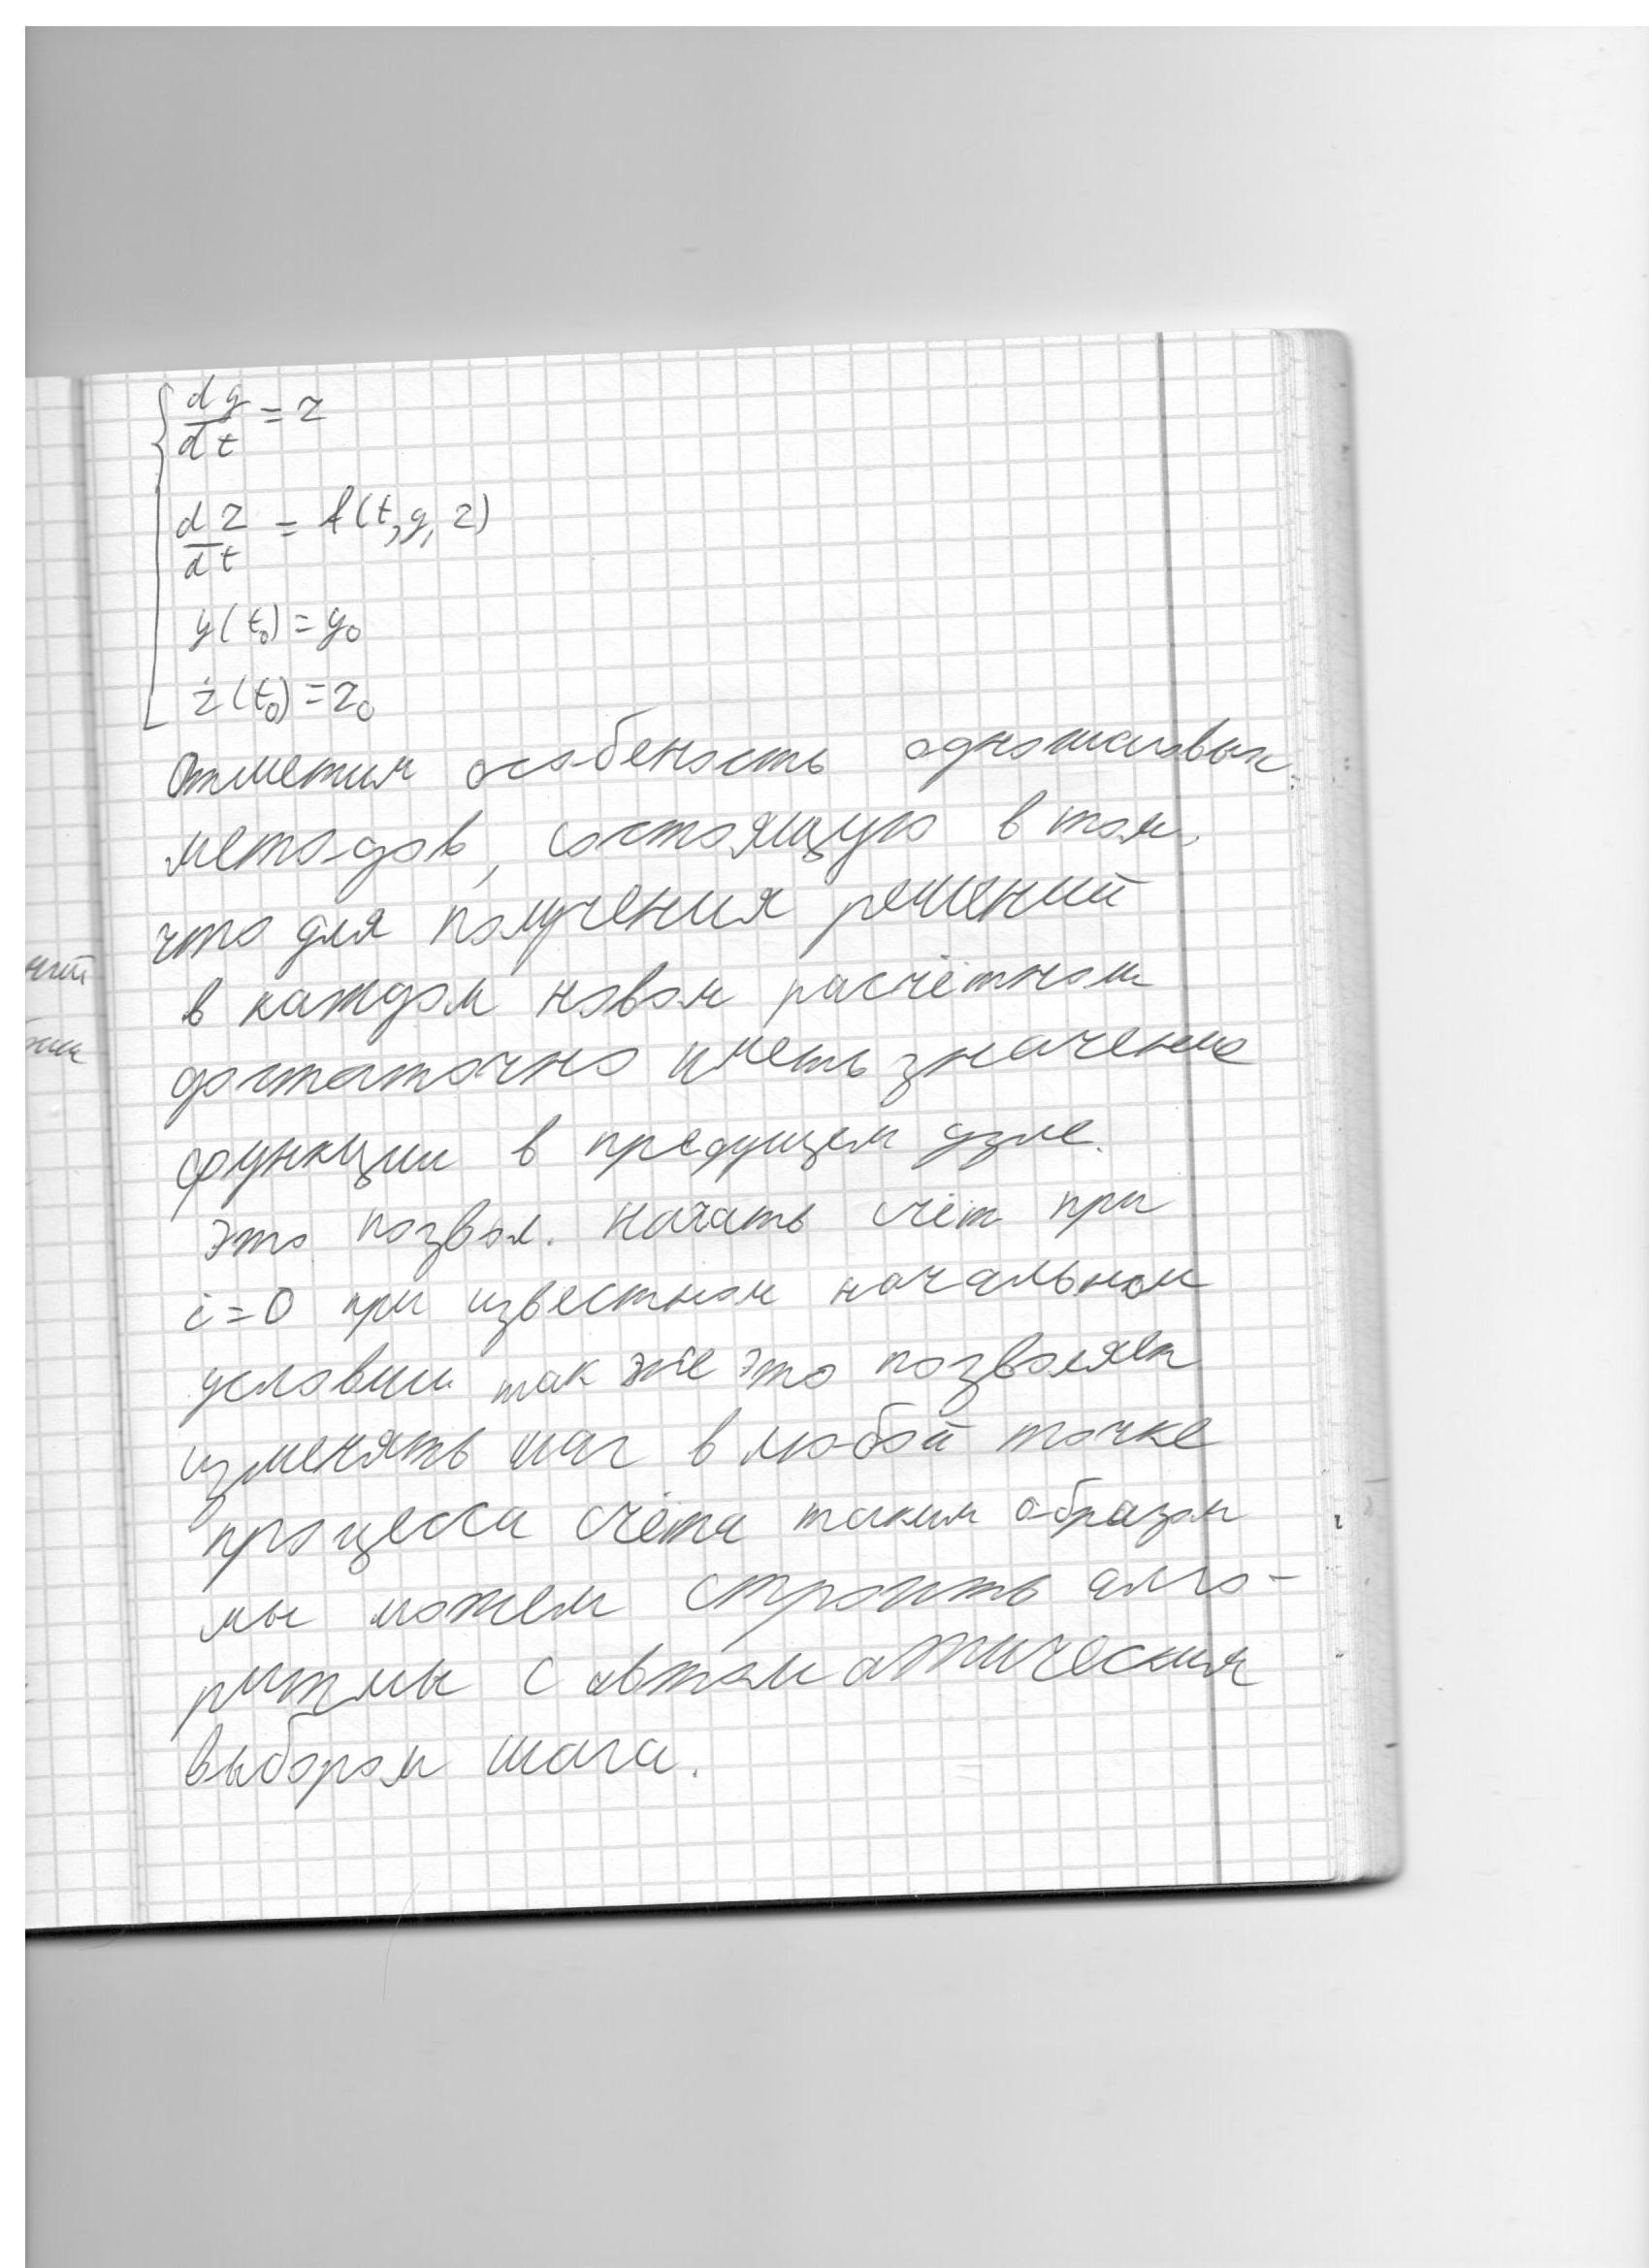 dy/dt = z
dz/dt = f(t, y, z)
y(t₀) = y₀
z(t₀) = z₀
Отметим особеность одношаговых
методов, состоящую в том,
что для получения решений
в каждом новом расчётном
достаточно иметь значение
функции в предущем узле.
Это позвол. начать счёт при
i=0 при известном начальном
условии так же это позволяет
изменять шаг в любой точке
процесса счёта таким образом
мы можем строить алго-
ритмы с автоматическим
выбором шага.